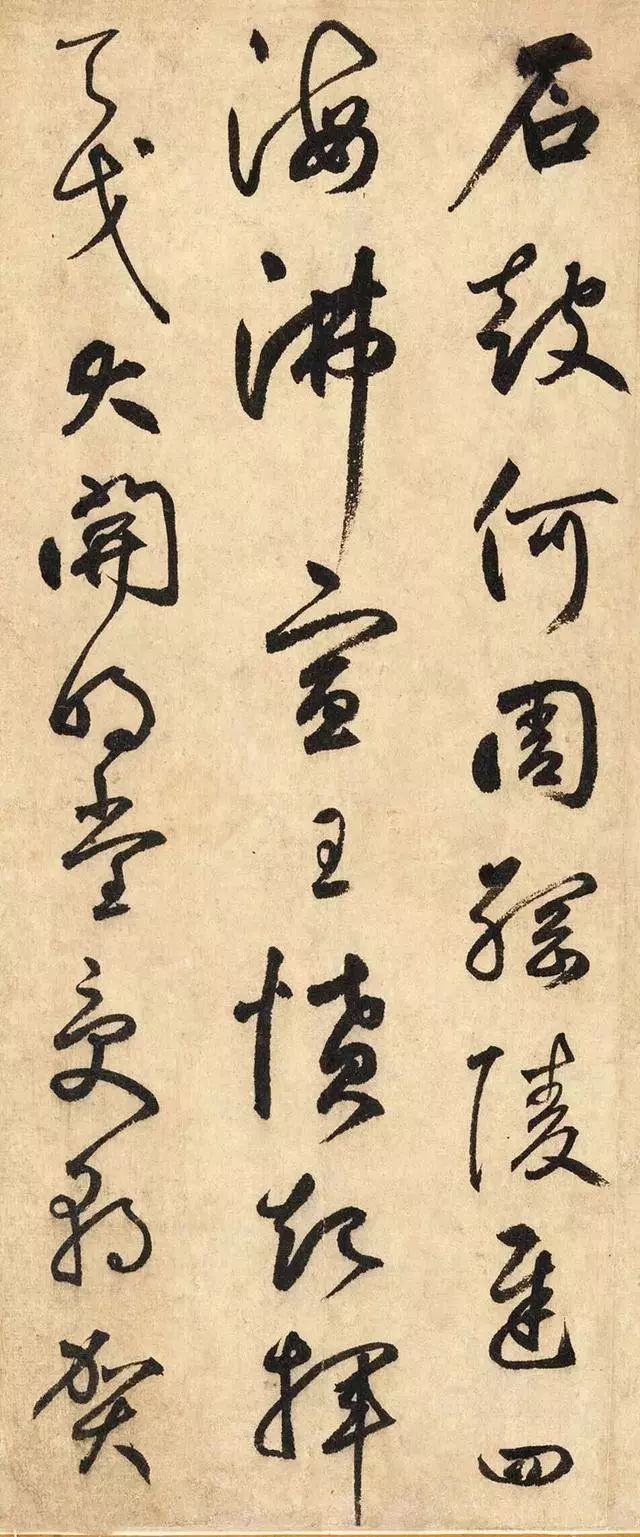 石鼓何周綱陵遲四
海沸宣王憤起揮
天戈大開明堂受朝賀